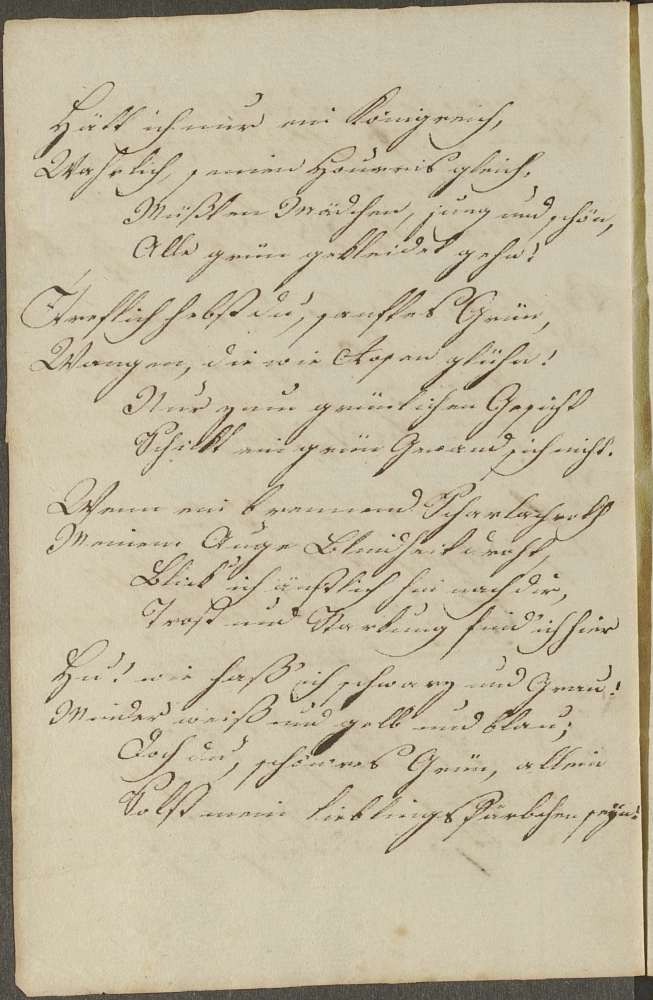 Hätt ich nur ein Königreich,
Wahrlich, seinen Houris gleich,
Müßten Mädchen, jung und schön,
Alle grün gekleidet gehn!
Treflich hebst du, sanftes Grün,
Wangen, die wie Rosen glühn!
Nur zum grünlichen Gesicht
Schikt ein grün Gewand sich nicht.
Wenn ein brennend Scharlachroth
Meinem Auge Blindheit droht,
Blick' ich änstlich hin nach dir,
Trost und Starkung find' ich hier
Hu! wie haß' ich schwarz und Grau!
Minder weiß und gelb und blau;
Doch du, schönes Grün, allein
Solst mein Lieblings Färbchen seyn!